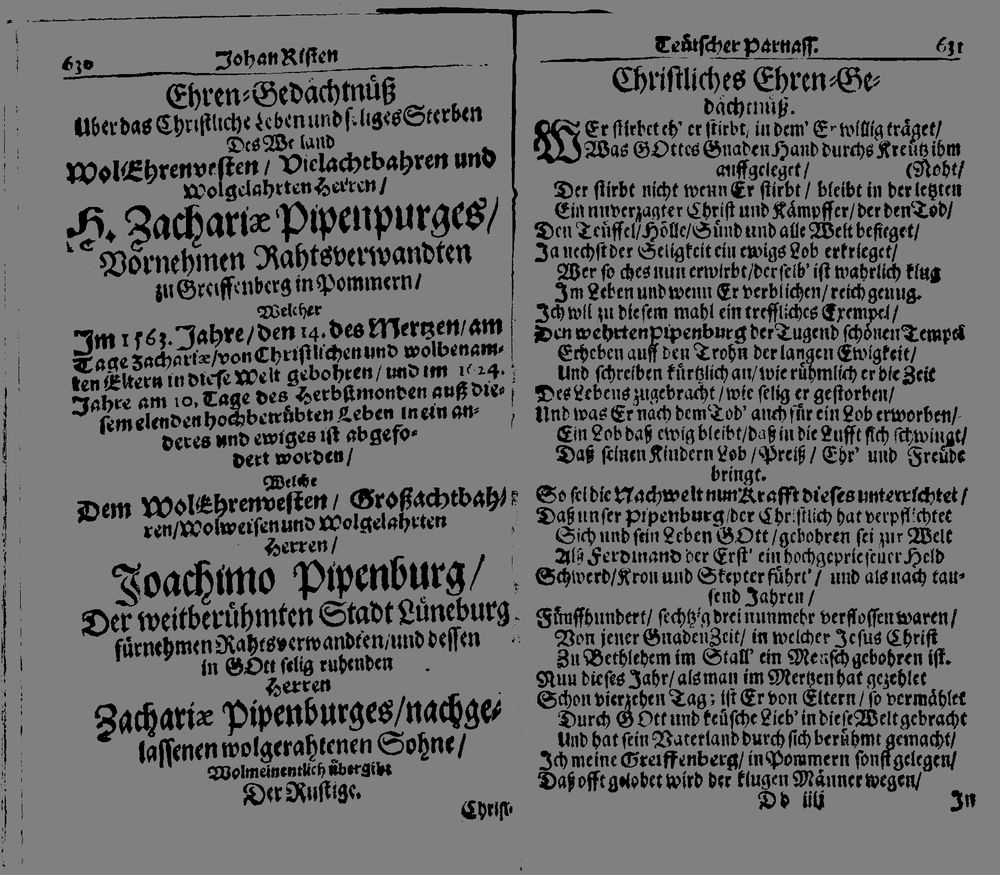 630 Johan Risten
Ehren-Gedächtnüß
Uber das Christliche Leben und seliges Sterben
Des Weiland
WolEhrenvesten/ Vielachtbahren und
Wolgelahrten Herren/
H. Zachariæ Pipenpurges/
Vornehmen Rahtsverwandten
zu Greiffenberg in Pommern/
Welcher
Im 1563. Jahre/den 14. des Mertzen/am
Tage Zachariæ/von Christlichen und wolbenam-
ten Eltern in diese Welt gebohren/ und im 1624.
Jahre am 10. Tage des Herbstmonden auß die-
sem elenden hochbetrübten Leben in ein an-
deres und ewiges ist abgefo-
dert worden/
Welche
Dem WolEhrenvesten/ Großachtbah-
ren/Wolweisen und Wolgelahrten
Herren/
Joachimo Pipenburg/
Der weitberühmten Stadt Lüneburg
fürnehmen Rahtsverwandten/und dessen
in GOtt selig ruhenden
Herren
Zachariæ Pipenburges/nachge-
lassenen wolgerahtenen Sohne/
Wolmeinentlich übergibt
Der Rustige.
Christ-
Teütscher Parnass. 631
Christliches Ehren-Ge-
dächtnüß.
WEr stirbet eh' er stirbt, in dem' Er willig träget/
Was GOttes Gnaden Hand durchs Kreütz ihm
auffgeleget/ (Noht/
Der stirbt nicht wenn Er stirbt/ bleibt in der letzten
Ein unverzagter Christ und Kämpffer/der den Tod/
Den Teüffel/Hölle/Sünd und alle Welt besieget/
Ja nechst der Seligkeit ein ewigs Lob erkrieget/
Wer solches nun erwirbt/derselb' ist wahrlich klug
Im Leben und wenn Er verblichen/reich genug.
Ich wil zu diesem mahl ein treffliches Exempel/
Den wehrten Pipenburg der Tugend schönen Tempel
Erheben auff den Trohn der langen Ewigkeit/
Und schreiben kürtzlich an/wie rühmlich er die Zeit
Des Lebens zugebracht/wie selig er gestorben/
Und was Er nach dem Tod' auch für ein Lob erworben/
Ein Lob daß ewig bleibt/daß in die Lufft sich schwingt/
Daß seinen Kindern Lob/Preiß/ Ehr' und Freüde
bringt.
So sei die Nachwelt nun Krafft dieses unterrichtet/
Daß unser Pipenburg/der Christlich hat verpflichtet
Sich und sein Leben GOtt/gebohren sei zur Welt
Alß Ferdinand der Erst' ein hochgepriesener Held
Schwerd/Kron und Skepter führt'/ und als nach tau-
send Jahren/
Fünffhundert/ sechtzig drei nunmehr verflossen waren/
Von jener Gnaden Zeit/ in welcher Jesus Christ
Zu Bethlehem im Stall' ein Mensch gebohren ist.
Nun dieses Jahr/als man im Mertzen hat gezehlet
Schon vierzehen Tag; ist Er von Eltern/ so vermählet
Durch GOtt und keüsche Lieb' in diese Welt gebracht
Und hat sein Vaterland durch sich berühmt gemacht/
Ich meine Greiffenberg/ in Pommern sonst gelegen/
Daß offt gelobet wird der klugen Männer wegen/
Dd iiij In